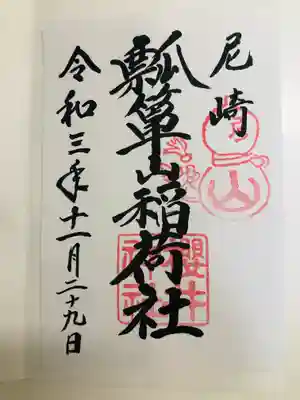 尼崎
瓢箪山稲荷社
令和三年十一月二十九日
山
櫻井神社